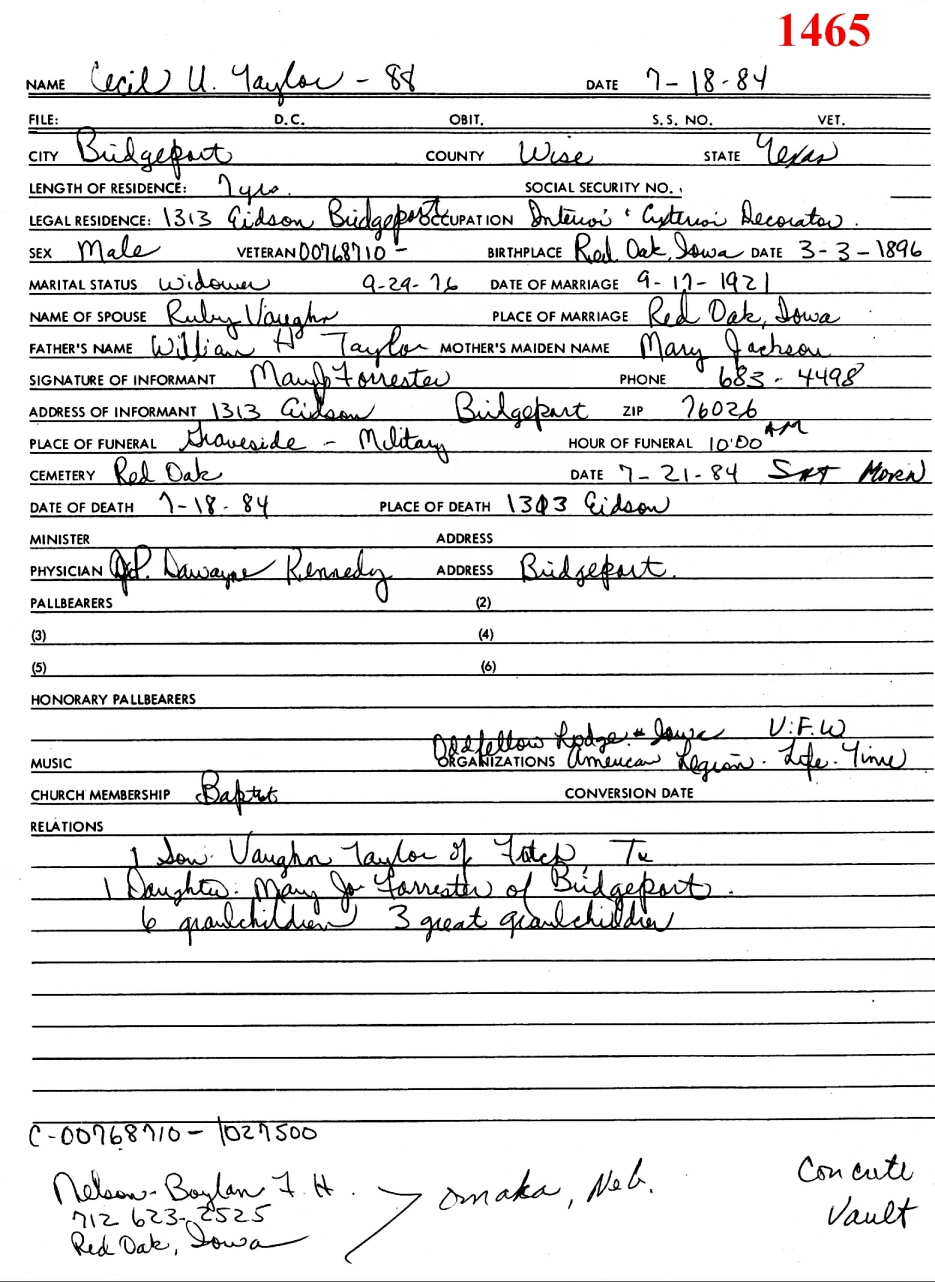 1465
NAME Cecil U. Taylor - 88 DATE 7-18-84
FILE: D.C. OBIT. S.S. NO. VET.
CITY Bridgeport COUNTY Wise STATE Texas
LENGTH OF RESIDENCE: 7 yrs. SOCIAL SECURITY NO.
LEGAL RESIDENCE: 1313 Eidson Bridgeport OCCUPATION Interior & Exterior Decorator.
SEX Male VETERAN 00768710 - BIRTHPLACE Red Oak, Iowa DATE 3-3-1896
MARITAL STATUS Widower 9-29-76 DATE OF MARRIAGE 9-17-1921
NAME OF SPOUSE Ruby Vaughn PLACE OF MARRIAGE Red Oak, Iowa
FATHER'S NAME William H Taylor MOTHER'S MAIDEN NAME Mary Jackson
SIGNATURE OF INFORMANT Mary Jo Forrester PHONE 683-4498
ADDRESS OF INFORMANT 1313 Eidson Bridgeport ZIP 76026
PLACE OF FUNERAL Graveside - Military HOUR OF FUNERAL 10:00 AM
CEMETERY Red Oak DATE 7-21-84 SAT MORN
DATE OF DEATH 7-18-84 PLACE OF DEATH 1313 Eidson
MINISTER ADDRESS
PHYSICIAN J.P. Dawayne Kennedy ADDRESS Bridgeport.
PALLBEARERS (2)
(3) (4)
(5) (6)
HONORARY PALLBEARERS
Oddfellow Lodge Iowa V.F.W
MUSIC ORGANIZATIONS American Legion - Life - Time
CHURCH MEMBERSHIP Baptist CONVERSION DATE
RELATIONS
1 Son: Vaughn Taylor of Tx
1 Daughter: Mary Jo Forrester of Bridgeport.
6 grandchildren 3 great grandchildren
C-00768710 - 1027500
Nelson-Boylan F.H. Omaha, Neb. Concrete
712 623-2525 Vault
Red Oak, Iowa